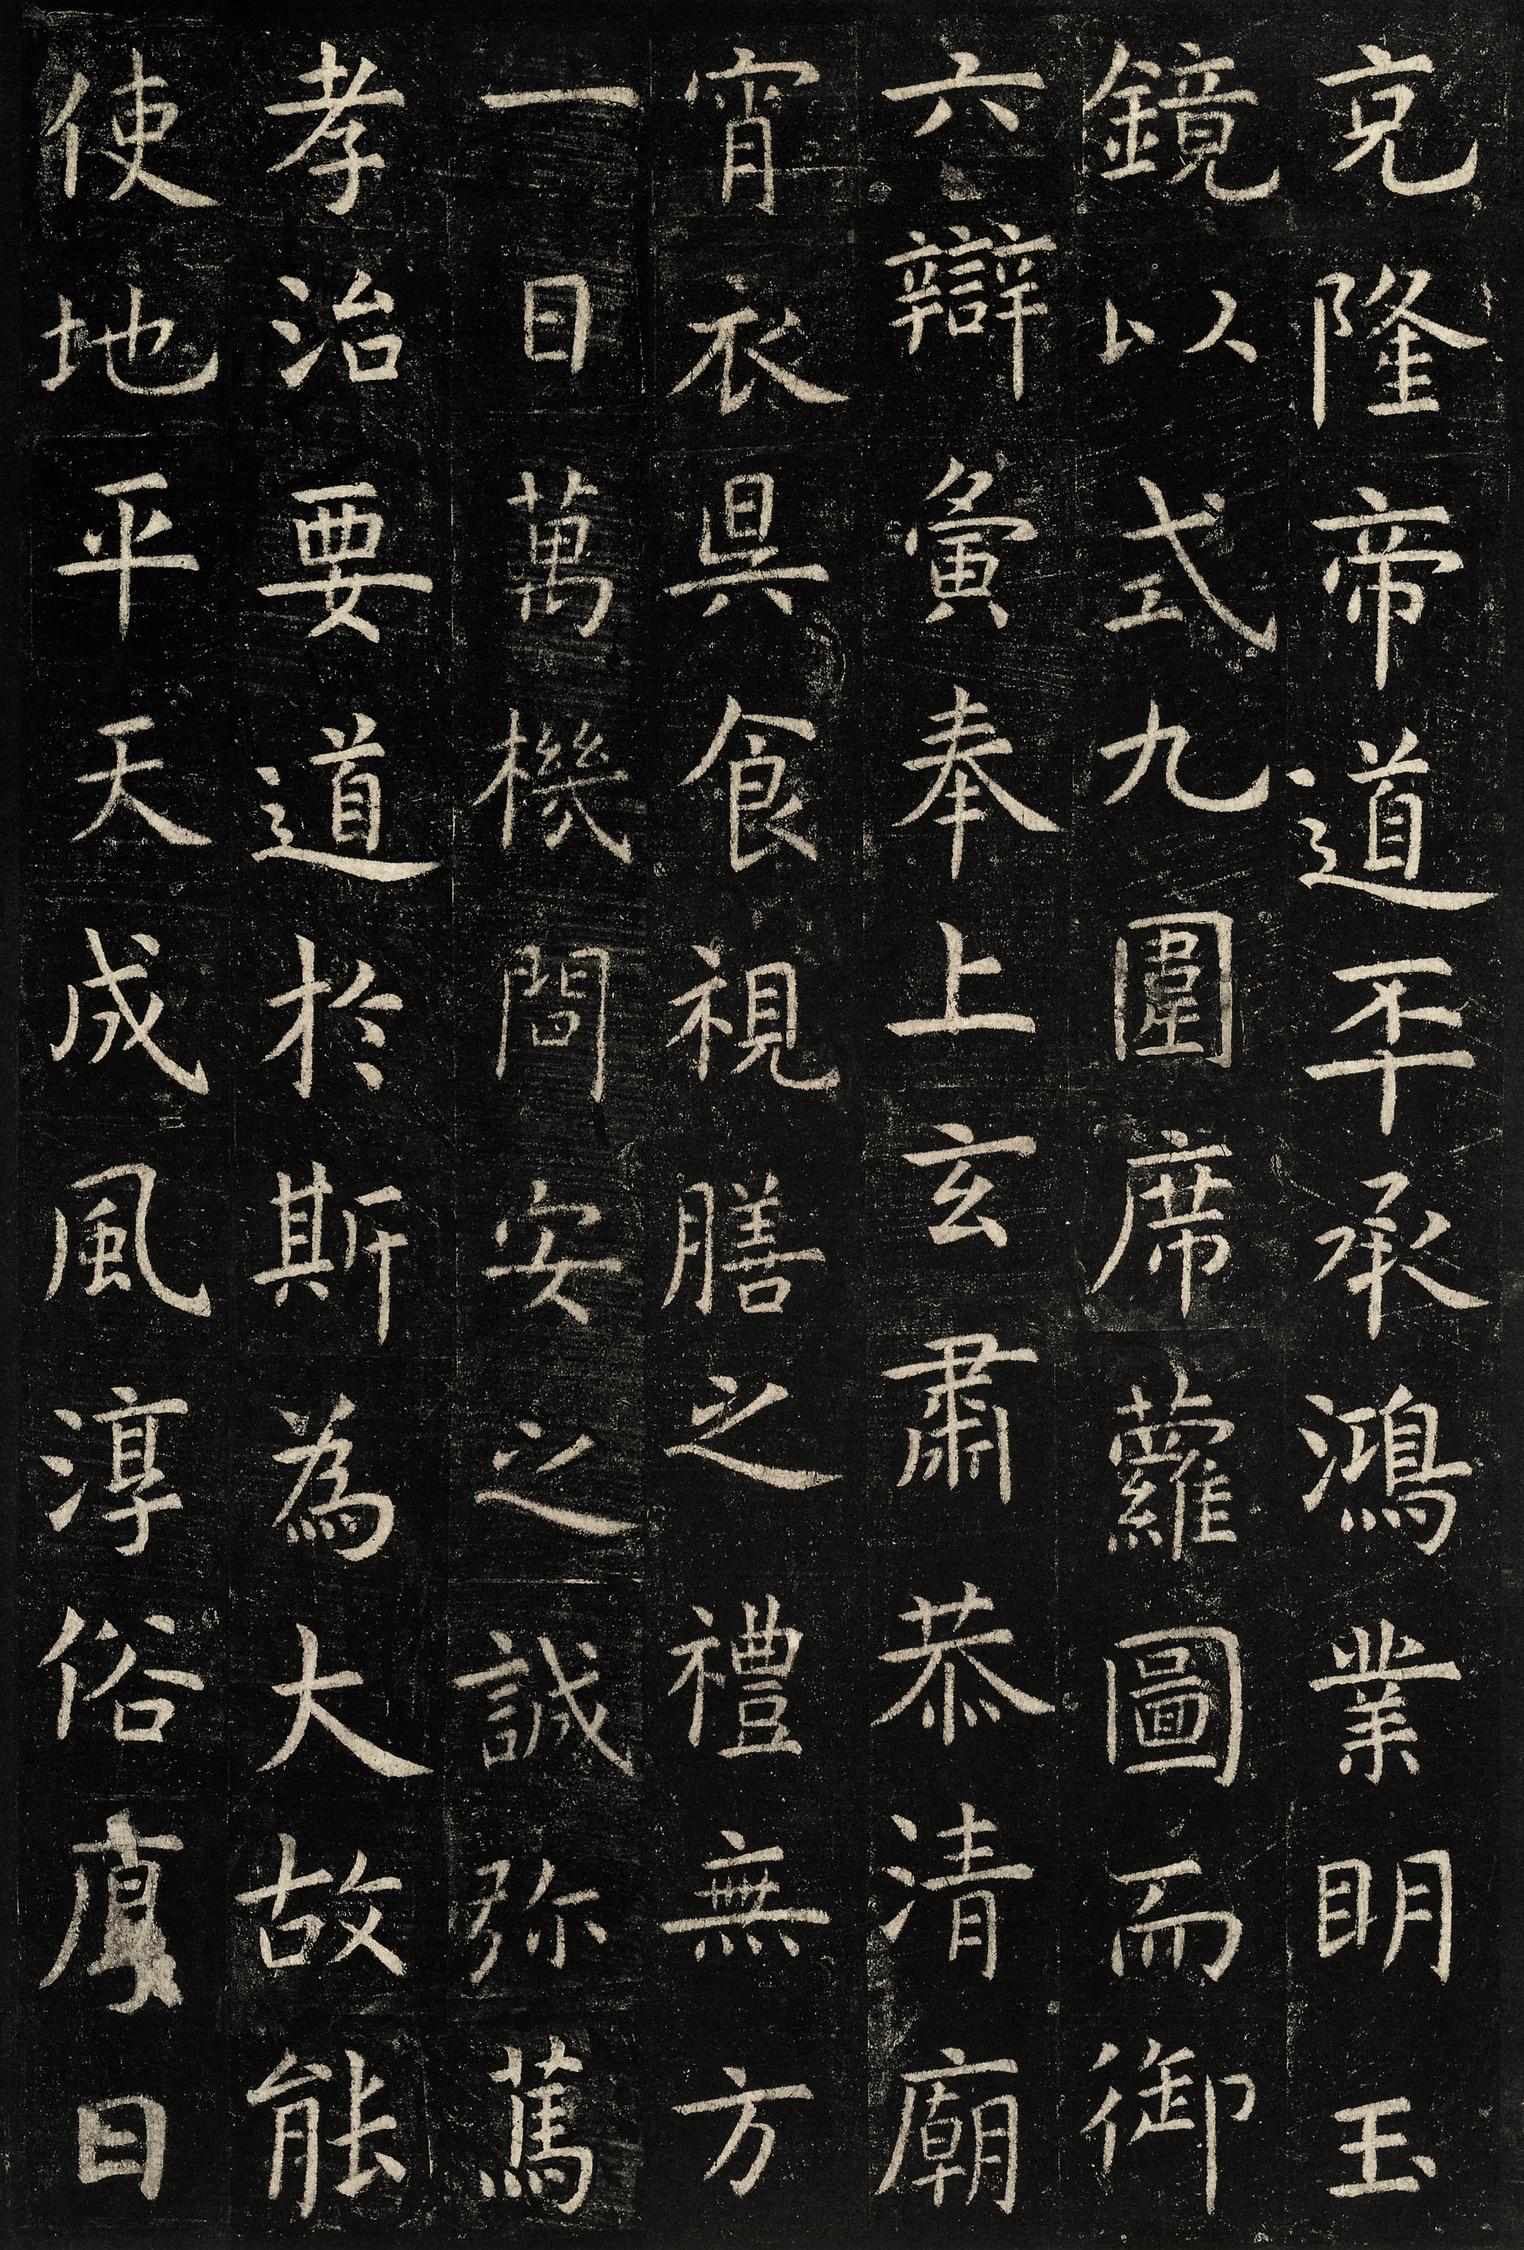 克隆帝道丕承鴻業明玉
鏡以式九圍席蘿圖而御
六辯寅奉上玄肅恭清廟
宵衣昃食視膳之禮無方
一日萬機問安之誠弥篤
孝治要道於斯為大故能
使地平天成風淳俗厚日